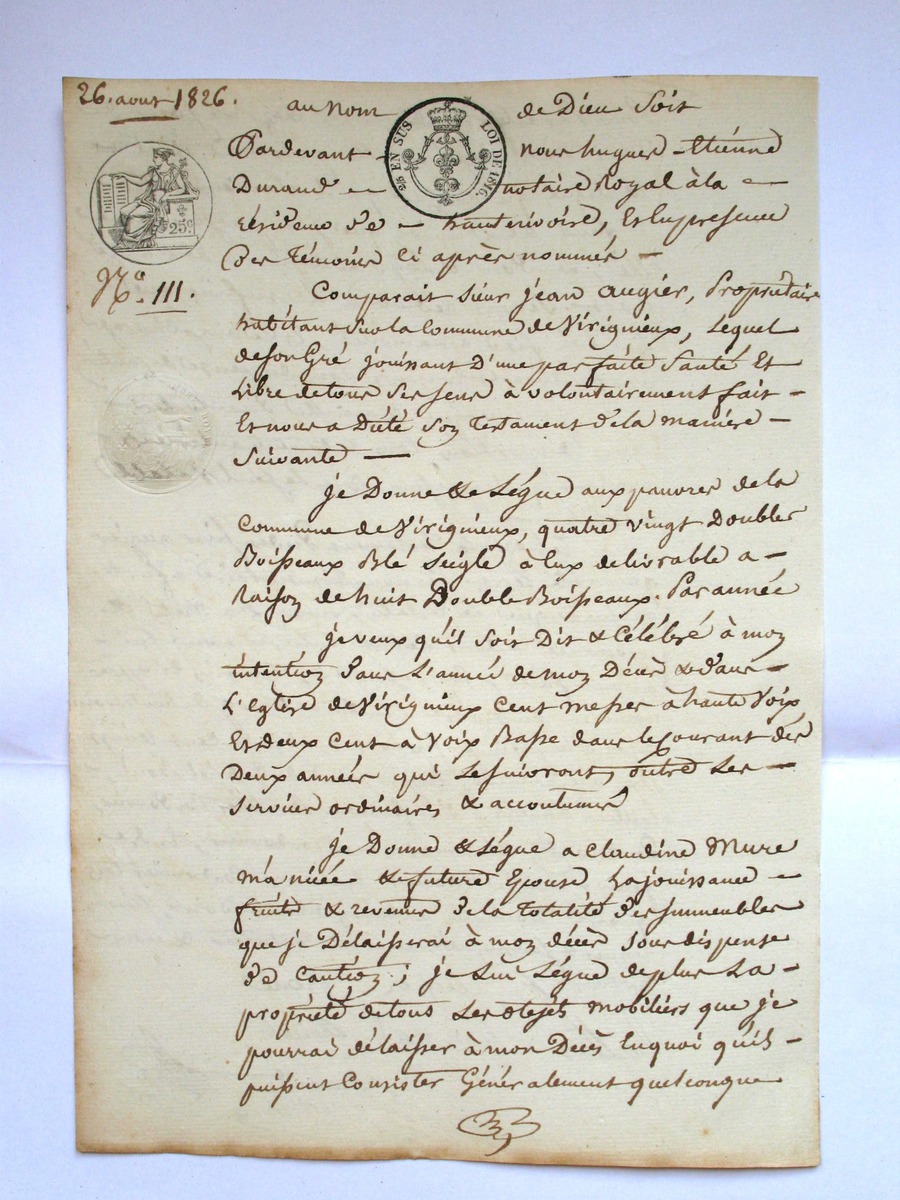 26. aout 1826.
au nom de Dieu Soit
25 EN SUS LOI DE 1816.
Pardevant nous hugues Etiénne
Durand notaire Royal à la
résidence de hauterivoire, Et En présence
Des témoins Ci après nommés
25c
No. 111.
Comparait sieur jean augier, Propriétaire
habitant Sur la Commune de Virignieux, Lequel
de son Gré jouissant D'une parfaite Santé Et
Libre de tous Ses sens à volontairement fait
Et nous a Dicté Son Testament de la maniere
Suivante
je Donne & Légue aux pauvres de la
Commune de Virignieux, quatre vingt Doubles
Boisseaux Blé Seigle à Eux delivrable a
Raison de huit Double Boisseaux Par année
je veux qu'il Soit Dit & Célébré à mon
intention dans L'année de mon Décès & dans
L'Eglise de Virignieux Cent messes à haute Voix
Et deux Cent à Voix Basse dans le Courant des
Deux années qui Le suivront, outre Les
Services ordinaires & accoutumés
je Donne & Légue a Claudine Mure
ma niéce & future Epouse La jouissance
fruits & revenus de la Totalité des immeubles
que je Délaisserai à mon décès sous dispense
de Caution; je Lui Légue de plus La
propriété de tous Les objets mobiliers que je
pourrai délaisser à mon Décès En quoi qu'ils
puissent Consister Généralement quelconque